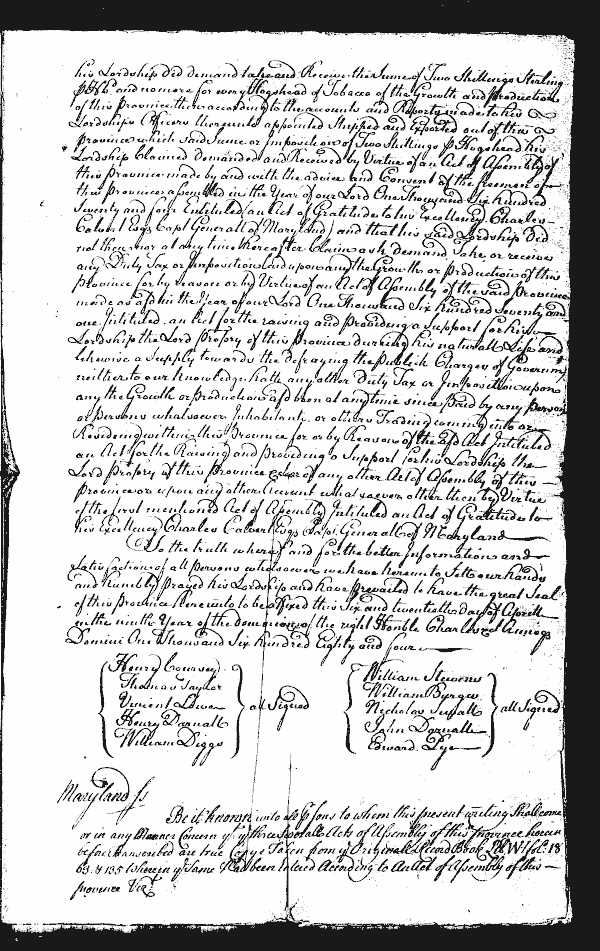 his Lordship did demand take and Receive the Sume of Two Shillings Sterling
and no more for every Hogshead of Tobacco of the Growth and production
of this Province then according to the accounts and Reports made to his
Lordships Officers thereunto appointed Shipped and Exported out of this
Province which said Sume or Imposition of Two Shillings p Hogshead his
Lordship Claimed demanded and Received by Virtue of an Act of Assembly of
this Province made by and with the advice and Consent of the freemen of
this Province assembled in the Year of our Lord One Thousand Six hundred
Seventy and four Entituled (an Act of Gratitude to his Excellency Charles
Calvert Esqr Capt Generall of Maryland) and that his said Lordship did
not then nor at any time hereafter Claim ask demand Take or receive
any Duty Tax or Imposition Laid upon any the Growth or production of this
Province for by reason or by Virtue of an Act of Assembly of the said Province
made as afsd in the Year of our Lord One Thousand Six hundred seventy and
one Intituled an Act for the raising and Providing a Support for his
Lordship the Lord Propry of this Province durring his naturall Life and
likewise a Supply towards the defraying the Publick Charges of Governmt
neither to our knowledge hath any other Duty Tax or Imposition upon
any the Growth or production afsd been at any time since Paid by any person
or Persons whatsoever Inhabitants or others Trading coming into or
Residing within this Province for or by Reason of the afsd Act Intituled
an Act for the Raising and Providing a Support for his Lordship the
Lord Propry of this Province or of any other Act of Assembly of this
Province or upon any other account whatsoever other then by Virtue
of the first mentioned Act of Assembly Intituled an Act of Gratitude to
his Excellency Charles Calvert Esqr Capt Generall of Maryland
To the truth whereof and for the better Information and
Satisfaction of all persons whatsoever we have hereunto Sett our hands
and humbly prayed his Lordship and have prevailed to have the great Seal
of this Province hereunto to be affixed this Six and twentieth day of Aprill
in the ninth Year of the dominion of the right Honble Charles Annoq
Domini One Thousand Six hundred Eighty and four
Henry Coursey
Thomas Taylor
Vincent Lowe
Henry Darnall
William Diggs
all Signed
William Stevens
William Burges
Nicholas Sewall
John Darnall
Edward Pye
all Signed
Maryland ss
Be it known unto all psons to whom this present writing Shall come
or in any Manner Concern yt ye three Acts of Assembly of this Province herein
before transcribed are true Copys Taken from ye Originall Record Book fol: 18
63. & 135 wherein ye Same had been entered According to An Act of Assembly of this
province Vizt